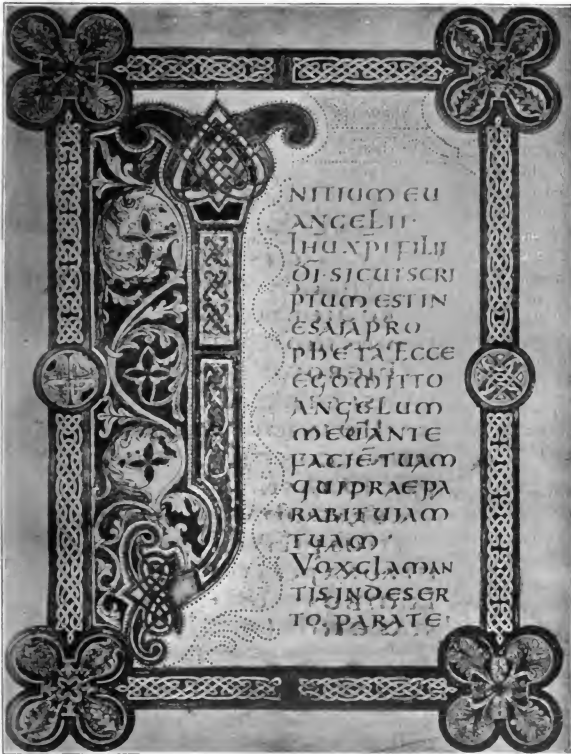 INITIUM EU
ANGELII·
IHU XPI FILII
DI· SICUT SCRI
PTUM EST IN
ESAIA PRO
PHETA ECCE
EGO MITTO
ANGELUM
MEUM ANTE
FACIE TUAM
QUI PRAEPA
RABIT UIAM
TUAM·
VOX CLAMAN
TIS IN DESER
TO, PARATE·